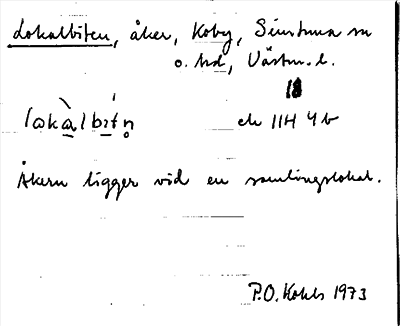 Lokalbiten, åker, Koby, Simtuna sn
o. hd, Västm. l.
18
ek 11H 4b
Åkern ligger vid en samlingslokal.
P.O. Kohls 1973